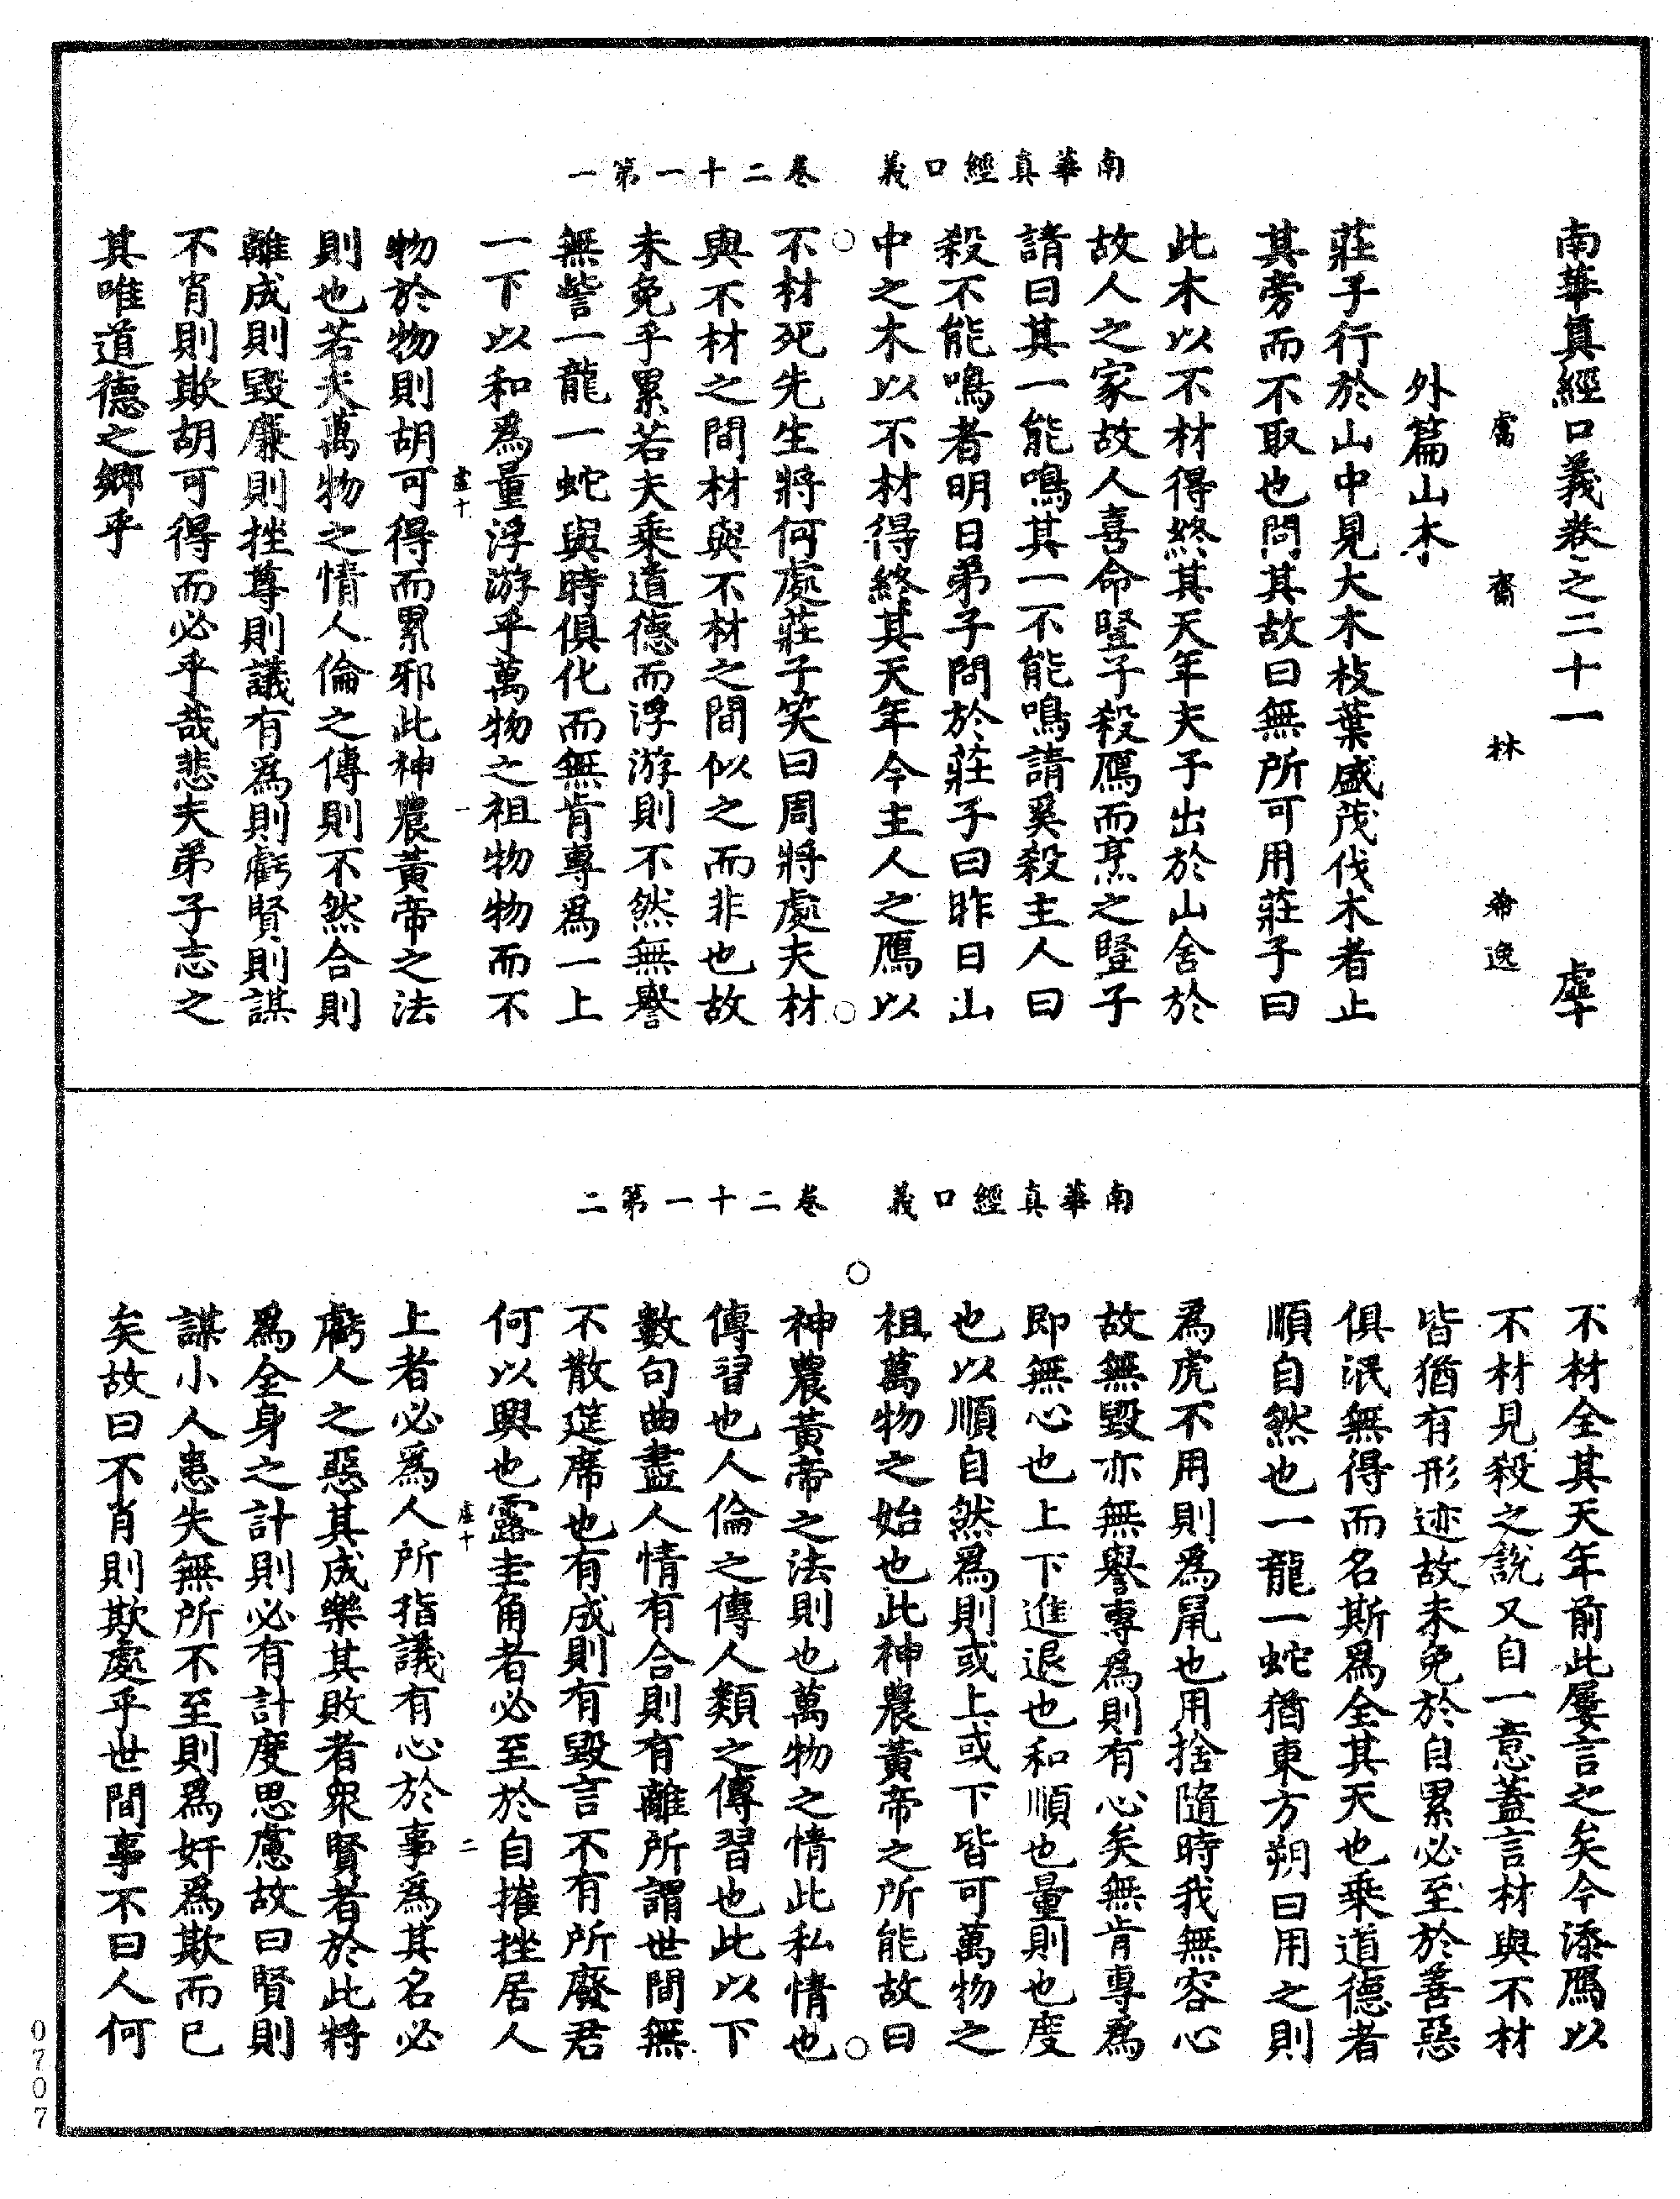 南華真經口義　卷二十一第一
南華真經口義卷之二十一　虛十
鬳齋林希逸
外篇山木
莊子行於山中見大木枝葉盛茂伐木者止
其旁而不取也問其故曰無所可用莊子曰
此木以不材得終其天年夫子出於山舍於
故人之家故人喜命豎子殺鴈而烹之豎子
請曰其一能鳴其一不能鳴請奚殺主人曰
殺不能鳴者明日弟子問於莊子曰昨日山
中之木以不材得終其天年今主人之鴈以
不材死先生將何處莊子笑曰周將處夫材
與不材之間材與不材之間似之而非也故
未免乎累若夫乘道德而浮游則不然無譽
無訾一龍一蛇與時俱化而無肯專為一上
一下以和為量浮游乎萬物之祖物物而不
虛十　一
物於物則胡可得而累邪此神農黃帝之法
則也若夫萬物之情人倫之傳則不然合則
離成則毀廉則挫尊則議有為則虧賢則謀
不肖則欺胡可得而必乎哉悲夫弟子志之
其唯道德之鄉乎
南華真經口義　卷二十一第二
不材全其天年前此屢言之矣今添鴈以
不材見殺之說又自一意蓋言材與不材
皆猶有形迹故未免於自累必至於善惡
俱泯無得而名斯為全其天也乘道德者
順自然也一龍一蛇猶東方朔曰用之則
為虎不用則為鼠也用捨隨時我無容心
故無毀亦無譽專為則有心矣無肯專為
即無心也上下進退也和順也量則也度
也以順自然為則或上或下皆可萬物之
祖萬物之始也此神農黃帝之所能故曰
神農黃帝之法則也萬物之情此私情也
傳習也人倫之傳人類之傳習也此以下
數句曲盡人情有合則有離所謂世間無
不散筵席也有成則有毀言不有所廢君
何以興也露圭角者必至於自摧挫居人
虛十　二
上者必為人所指議有心於事為其名必
虧人之惡其成樂其敗者衆賢者於此將
為全身之計則必有計度思慮故曰賢則
謀小人患失無所不至則為奸為欺而已
矣故曰不肖則欺處乎世間事不曰人何
0707